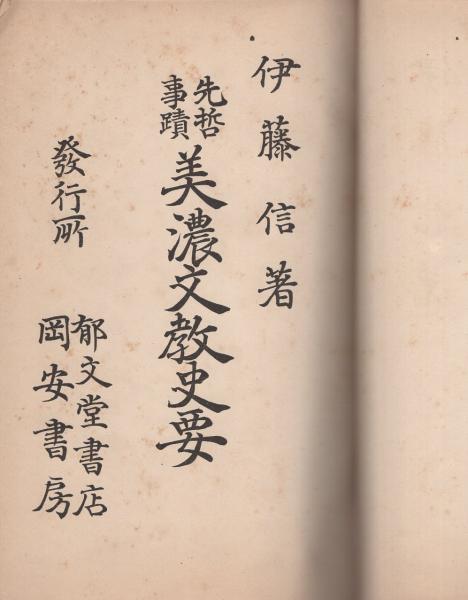 伊藤信著
先哲
事蹟
美濃文教史要
發行所
郁文堂書店
岡安書房